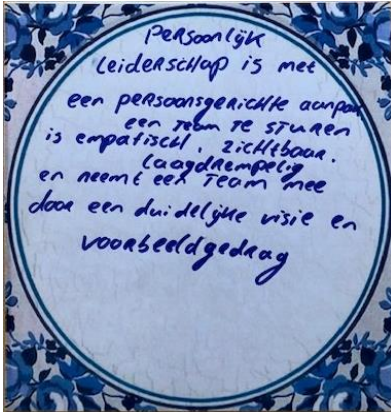 Persoonlijk
Leiderschap is met
een persoonsgerichte aanpak
een team te sturen
is empatisch, zichtbaar,
laagdrempelig
en neemt een team mee
door een duidelijke visie en
voorbeeldgedrag